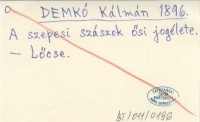 DEMKÓ Kálmán 1896.
A szepesi szászok ősi jogélete.
— Lőcse.